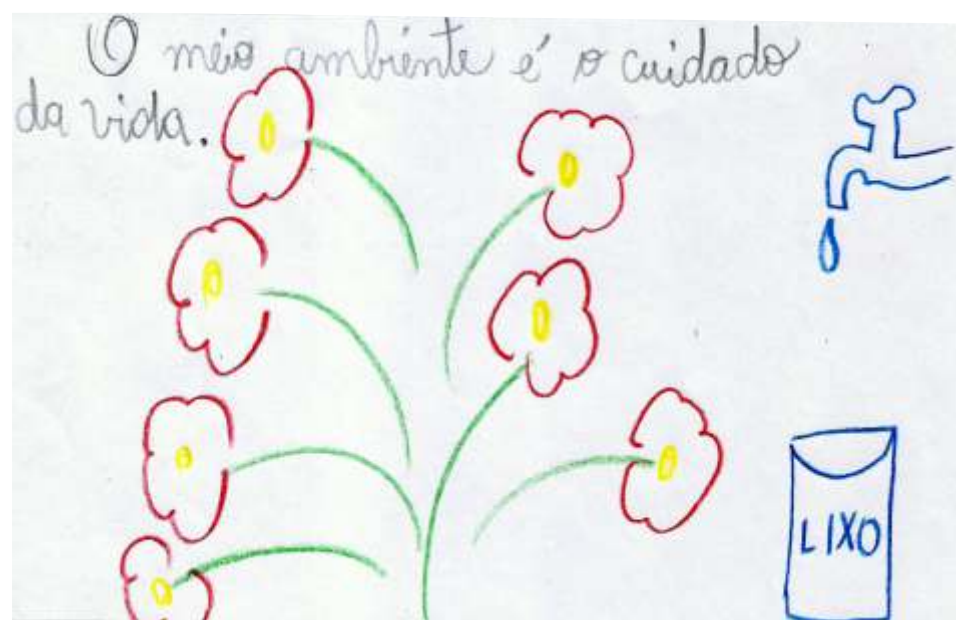 O meio ambiente é o cuidado
da vida.
LIXO